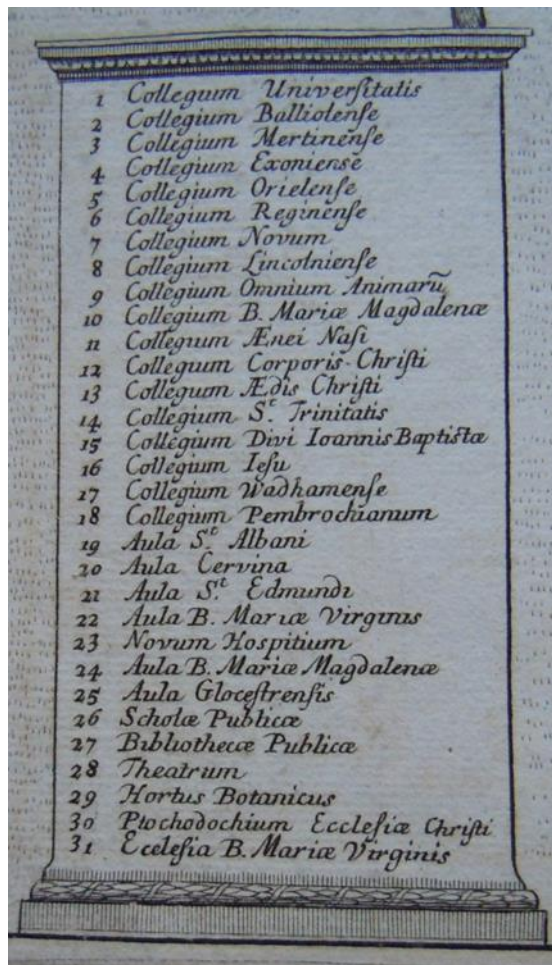 1 Collegium Universitatis
2 Collegium Balliolense
3 Collegium Mertinense
4 Collegium Exoniense
5 Collegium Orielense
6 Collegium Reginense
7 Collegium Novum
8 Collegium Lincolniense
9 Collegium Omnium Animarũ
10 Collegium B. Mariæ Magdalenæ
11 Collegium Ænei Nasi
12 Collegium Corporis-Christi
13 Collegium Ædis Christi
14 Collegium S.t Trinitatis
15 Collegium Divi Ioannis Baptistæ
16 Collegium Iesu
17 Collegium Wadhamense
18 Collegium Pembrochianum
19 Aula S.t Albani
20 Aula Cervina
21 Aula S.t Edmundi
22 Aula B. Mariæ Virginis
23 Novum Hospitium
24 Aula B. Mariæ Magdalenæ
25 Aula Glocestrensis
26 Scholæ Publicæ
27 Bibliothecæ Publicæ
28 Theatrum
29 Hortus Botanicus
30 Ptochodochium Ecclesiæ Christi
31 Ecclesia B. Mariæ Virginis